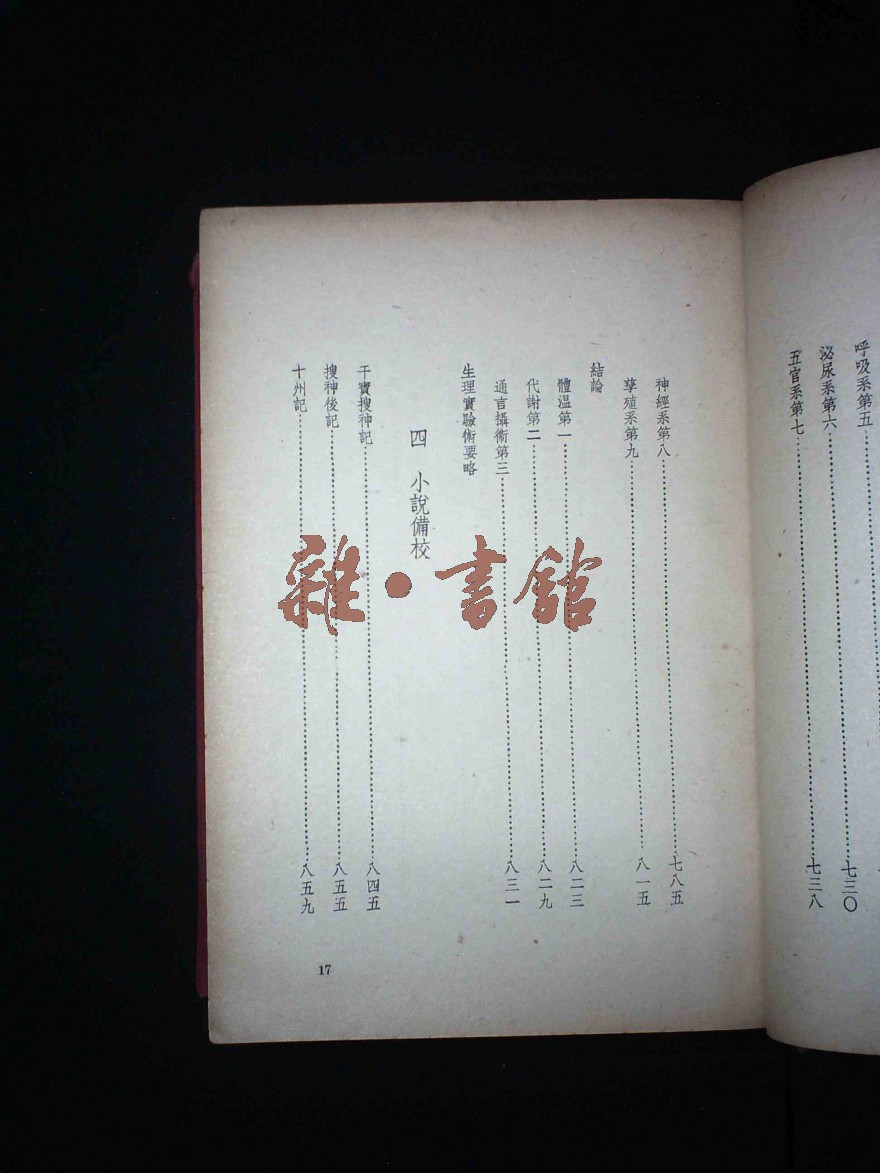 呼吸系第五
泌尿系第六……七三〇
五官系第七……七三八
神經系第八……七八五
孳殖系第九……八一五
結論
體温第一……八二三
代謝第二……八二九
通言攝衞第三……八三一
生理實驗術要略
四 小說備校
干寶搜神記……八四五
搜神後記……八五五
十州記……八五九
17
雜·書館